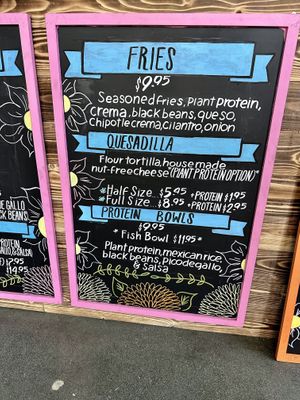 FRIES
$9.95
Seasoned fries, Plant protein,
Crema, black beans, queso,
Chipotle crema, cilantro, onion
QUESADILLA
Flour tortilla, house made
nut-free cheese (PLANT PROTEIN OPTION)*
*Half Size.. $5.95 +PROTEIN $1.95
*Full Size.. $8.95 +PROTEIN $2.95
PROTEIN BOWLS
$9.95
* Fish Bowl $11.95*
Plant protein, mexican rice,
black beans, Pico de gallo,
& Salsa
GALLO
BEANS,
PROTEIN
& SALSA)
14.95